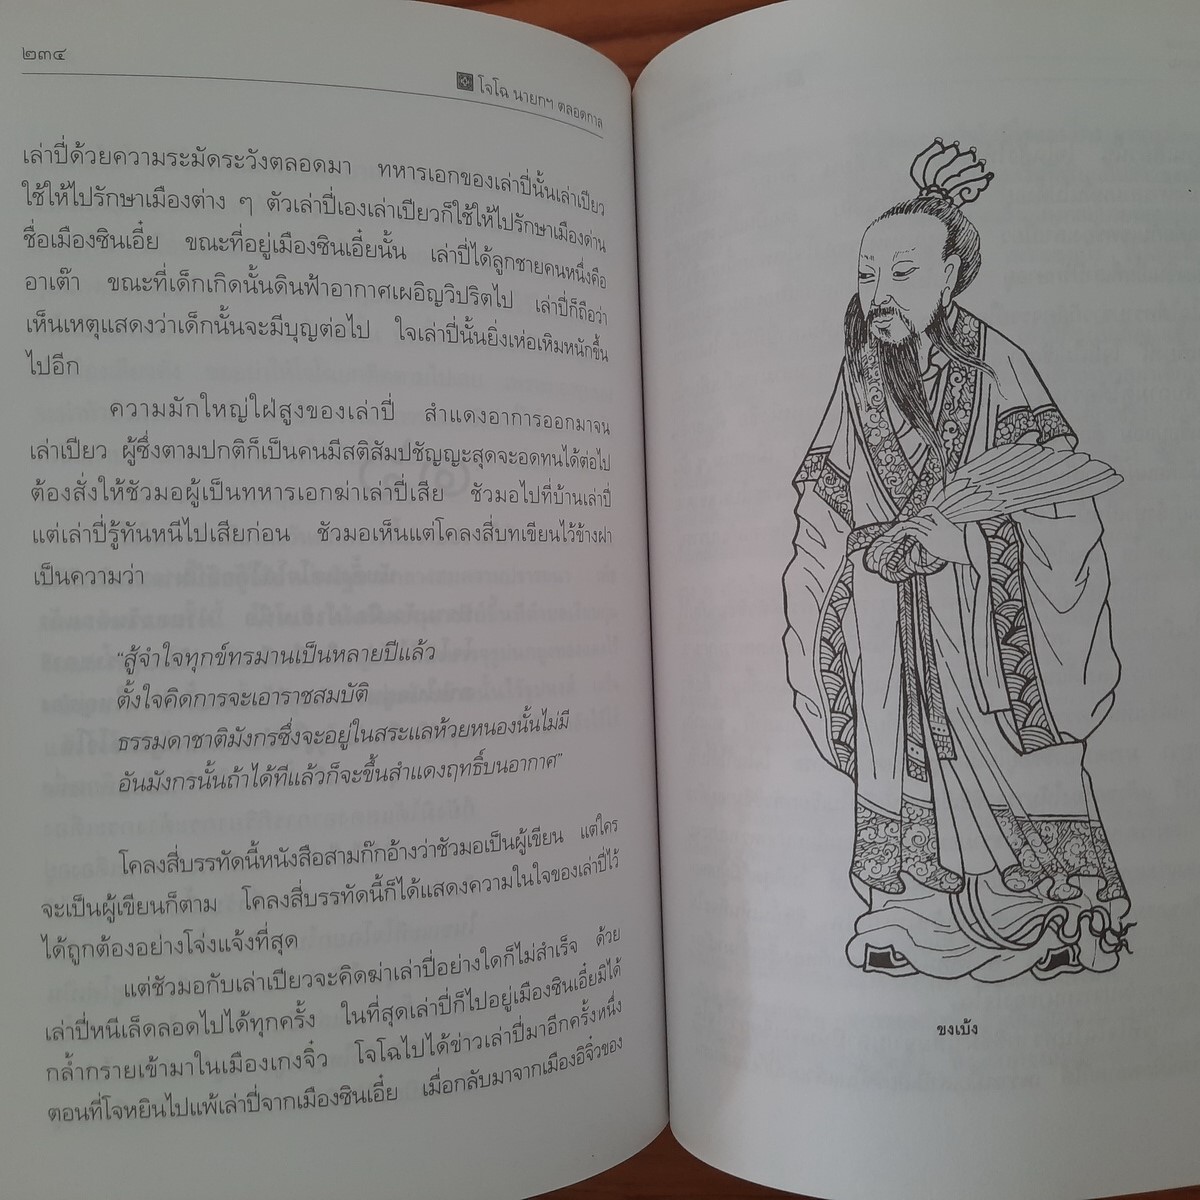 ๒๓๔
โจโฉ นายกฯ ตลอดกาล
เล่าปี่ด้วยความระมัดระวังตลอดมา ทหารเอกของเล่าปี่นั้นเล่าเปียว
ใช้ให้ไปรักษาเมืองต่าง ๆ ตัวเล่าปี่เองเล่าเปียวก็ใช้ให้ไปรักษาเมืองด่าน
ชื่อเมืองซินเอี๋ย ขณะที่อยู่เมืองซินเอี๋ยนั้น เล่าปี่ได้ลูกชายคนหนึ่งคือ
อาเต๊า ขณะที่เด็กเกิดนั้นดินฟ้าอากาศเผอิญวิปริตไป เล่าปี่ก็ถือว่า
เห็นเหตุแสดงว่าเด็กนั้นจะมีบุญต่อไป ใจเล่าปี่นั้นยิ่งเห่อเหิมหนักขึ้น
ไปอีก
ความมักใหญ่ใฝ่สูงของเล่าปี่ สำแดงอาการออกมาจน
เล่าเปียว ผู้ซึ่งตามปกติก็เป็นคนมีสติสัมปชัญญะสุดจะอดทนได้ต่อไป
ต้องสั่งให้ชัวมอผู้เป็นทหารเอกฆ่าเล่าปี่เสีย ชัวมอไปที่บ้านเล่าปี่
แต่เล่าปี่รู้ทันหนีไปเสียก่อน ชัวมอเห็นแต่โคลงสี่บทเขียนไว้ข้างฝา
เป็นความว่า
“สู้จำใจทุกข์ทรมานเป็นหลายปีแล้ว
ตั้งใจคิดการจะเอาราชสมบัติ
ธรรมดาชาติมังกรซึ่งจะอยู่ในสระแลห้วยหนองนั้นไม่มี
อันมังกรนั้นถ้าได้ทีแล้วก็จะขึ้นสำแดงฤทธิ์บนอากาศ”
โคลงสี่บรรทัดนี้หนังสือสามก๊กอ้างว่าชัวมอเป็นผู้เขียน แต่ใคร
จะเป็นผู้เขียนก็ตาม โคลงสี่บรรทัดนี้ก็ได้แสดงความในใจของเล่าปี่ไว้
ได้ถูกต้องอย่างโจ่งแจ้งที่สุด
แต่ชัวมอกับเล่าเปียวจะคิดฆ่าเล่าปี่อย่างใดก็ไม่สำเร็จ ด้วย
เล่าปี่หนีเล็ดลอดไปได้ทุกครั้ง ในที่สุดเล่าปี่ก็ไปอยู่เมืองซินเอี๋ยมิได้
กล้ำกรายเข้ามาในเมืองเกงจิ๋ว โจโฉไปได้ข่าวเล่าปี่มาอีกครั้งหนึ่ง
ตอนที่โจหยินไปแพ้เล่าปี่จากเมืองซินเอี๋ย เมื่อกลับมาจากเมืองอิจิ๋วของ
ขงเบ้ง